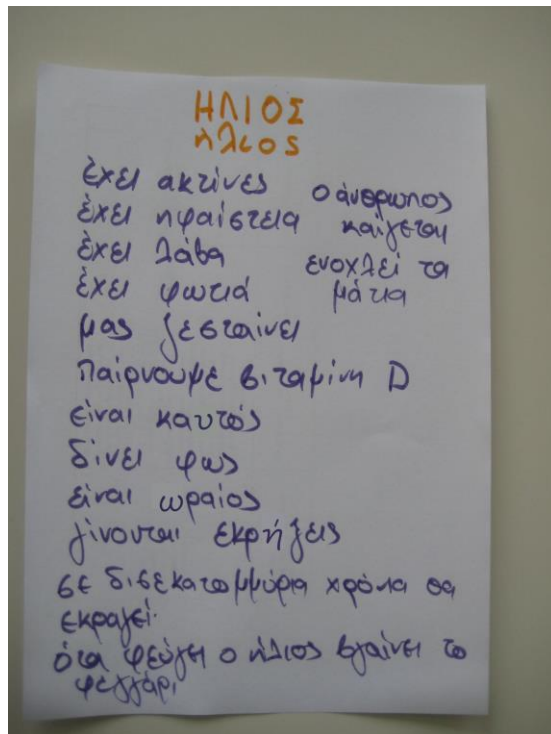 ΗΛΙΟΣ
ήλιος
έχει ακτίνες
έχει ηφαίστεια
έχει λάβα
έχει φωτιά
μας ζεσταίνει
παίρνουμε βιταμίνη D
είναι καυτός
δίνει φως
είναι ωραίος
γίνονται εκρήξεις
σε δισεκατομμύρια χρόνια θα
εκραγεί.
όταν φεύγει ο ήλιος βγαίνει το
φεγγάρι
ο άνθρωπος
καίγεται
ενοχλεί τα
μάτια